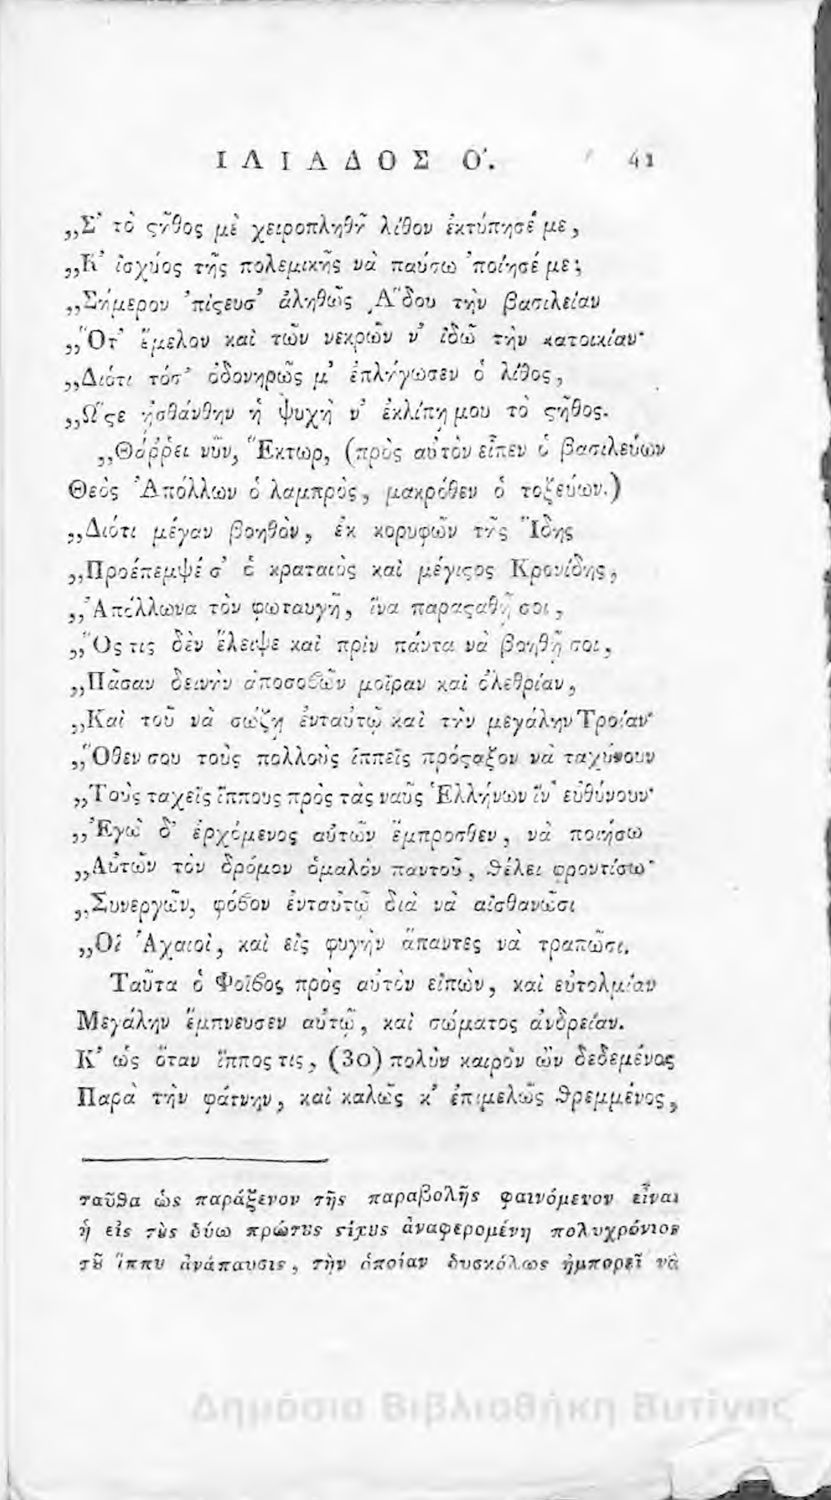 ΙΛΙΑΔΟΣ Ο΄. 41
„Σ᾽ τὸ ϛῆθος μὲ χειροπληθῆ λίθον ἐκτύπησέ με,
„Κ᾽ ἰσχύος τῆς πολεμικῆς νὰ παύσω ᾽ποίησέ με;
„Σήμερον ᾽πίϛευσ᾽ ἀληθῶς Ἅδου τὴν βασιλείαν
„Ὅτ᾽ ἔμελον καὶ τῶν νεκρῶν ν᾽ ἰδῶ τὴν κατοικίαν·
„Διότι τόσ᾽ ὀδονηρῶς μ᾽ ἐπλήγωσεν ὁ λίθος,
„Ὥϛε ᾐσθάνθην ἡ ψυχὴ ν᾽ ἐκλίπῃ μου τὸ ϛῆθος.
„Θάῤῥει νῦν, Ἕκτωρ, (πρὸς αὐτὸν εἶπεν ὁ βασιλεύων
Θεὸς Ἀπόλλων ὁ λαμπρὸς, μακρόθεν ὁ τοξεύων.)
„Διότι μέγαν βοηθὸν, ἐκ κορυφῶν τῆς Ἴδης
„Προέπεμψέ σ᾽ ὁ κραταιὸς καὶ μέγιϛος Κρονίδης,
„Ἀπόλλωνα τὸν φωταυγῆ, ἵνα παραϛαθῇ σοι,
„Ὅς τις δὲν ἔλειψε καὶ πρὶν πάντα νὰ βοηθῇ σοι,
„Πᾶσαν δεινὴν ἀποσοβῶν μοῖραν καὶ ὀλεθρίαν,
„Καὶ τοῦ νὰ σώζῃ ἐνταὐτῷ καὶ τὴν μεγάλην Τροίαν·
„Ὅθεν σου τοὺς πολλοὺς ἱππεῖς πρόϛαξον νὰ ταχύνουν
„Τοὺς ταχεῖς ἵππους πρὸς τὰς ναῦς Ἑλλήνων ἵν᾽ εὐθύνουν·
„Ἐγὼ δ᾽ ἐρχόμενος αὐτῶν ἔμπροσθεν, νὰ ποιήσω
„Αὐτῶν τὸν δρόμον ὁμαλὸν παντοῦ, θέλει φροντίσω·
„Συνεργῶν, φόβον ἐνταὐτῷ διὰ νὰ αἰσθανῶσι
„Οἱ Ἀχαιοὶ, καὶ εἰς φυγὴν ἅπαντες νὰ τραπῶσι.
Ταῦτα ὁ Φοῖβος πρὸς αὐτὸν εἰπὼν, καὶ εὐτολμίαν
Μεγάλην ἔμπνευσεν αὐτῷ, καὶ σώματος ἀνδρείαν.
Κ᾽ ὡς ὅταν ἵππος τις, (30) πολὺν καιρὸν ὢν δεδεμένος
Παρὰ τὴν φάτνην, καὶ καλῶς κ᾽ ἐπιμελῶς θρεμμένος,
ταῦθα ὡς παράξενον τῆς παραβολῆς φαινόμενον εἶναι
ἡ εἰς τȣ̀ς δύω πρώτȣς ϛίχȣς ἀναφερομένη πολυχρόνιος
τȣ͂ ἵππȣ ἀνάπαυσις, τὴν ὁποίαν δυσκόλως ἠμπορεῖ νὰ
Δημόσια Βιβλιοθήκη Βυτίνας